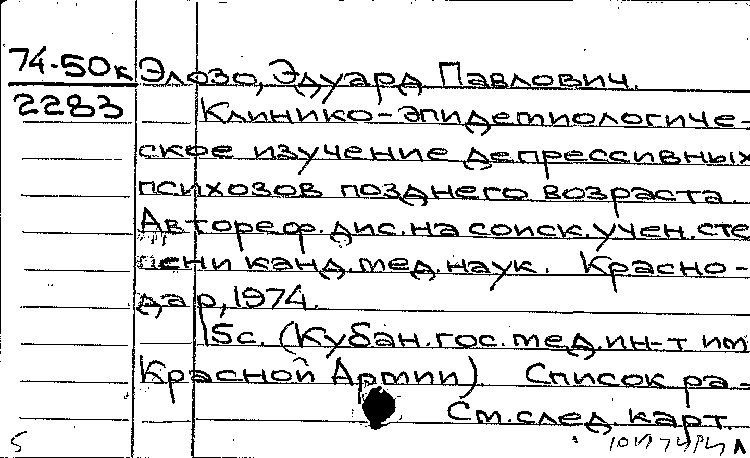 74-50к Элозо, Эдуард Павлович.
2283 Клинико-эпидемиологиче-
ское изучение депрессивных
психозов позднего возраста.
Автореф. дис. на соиск. учен. сте
пени канд. мед. наук. Красно-
дар, 1974.
15с. (Кубан. гос. мед. ин-т им
Красной Армии). Список ра-
См. след. карт.
5